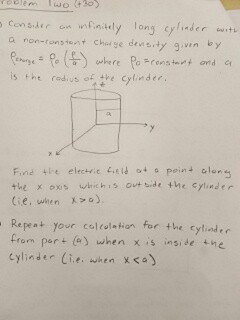 roblem Two (+30)
Consider an infinitely long cylinder with
a non-constant charge density given by
ρcharge = ρ0 (r/a) where ρ0 = constant and a
is the radius of the cylinder.
z
a
y
x
Find the electric field at a point along
the x axis which is outside the cylinder
(i.e. when x>a).
Repeat your calculation for the cylinder
from part (a) when x is inside the
cylinder (i.e. when x<a)